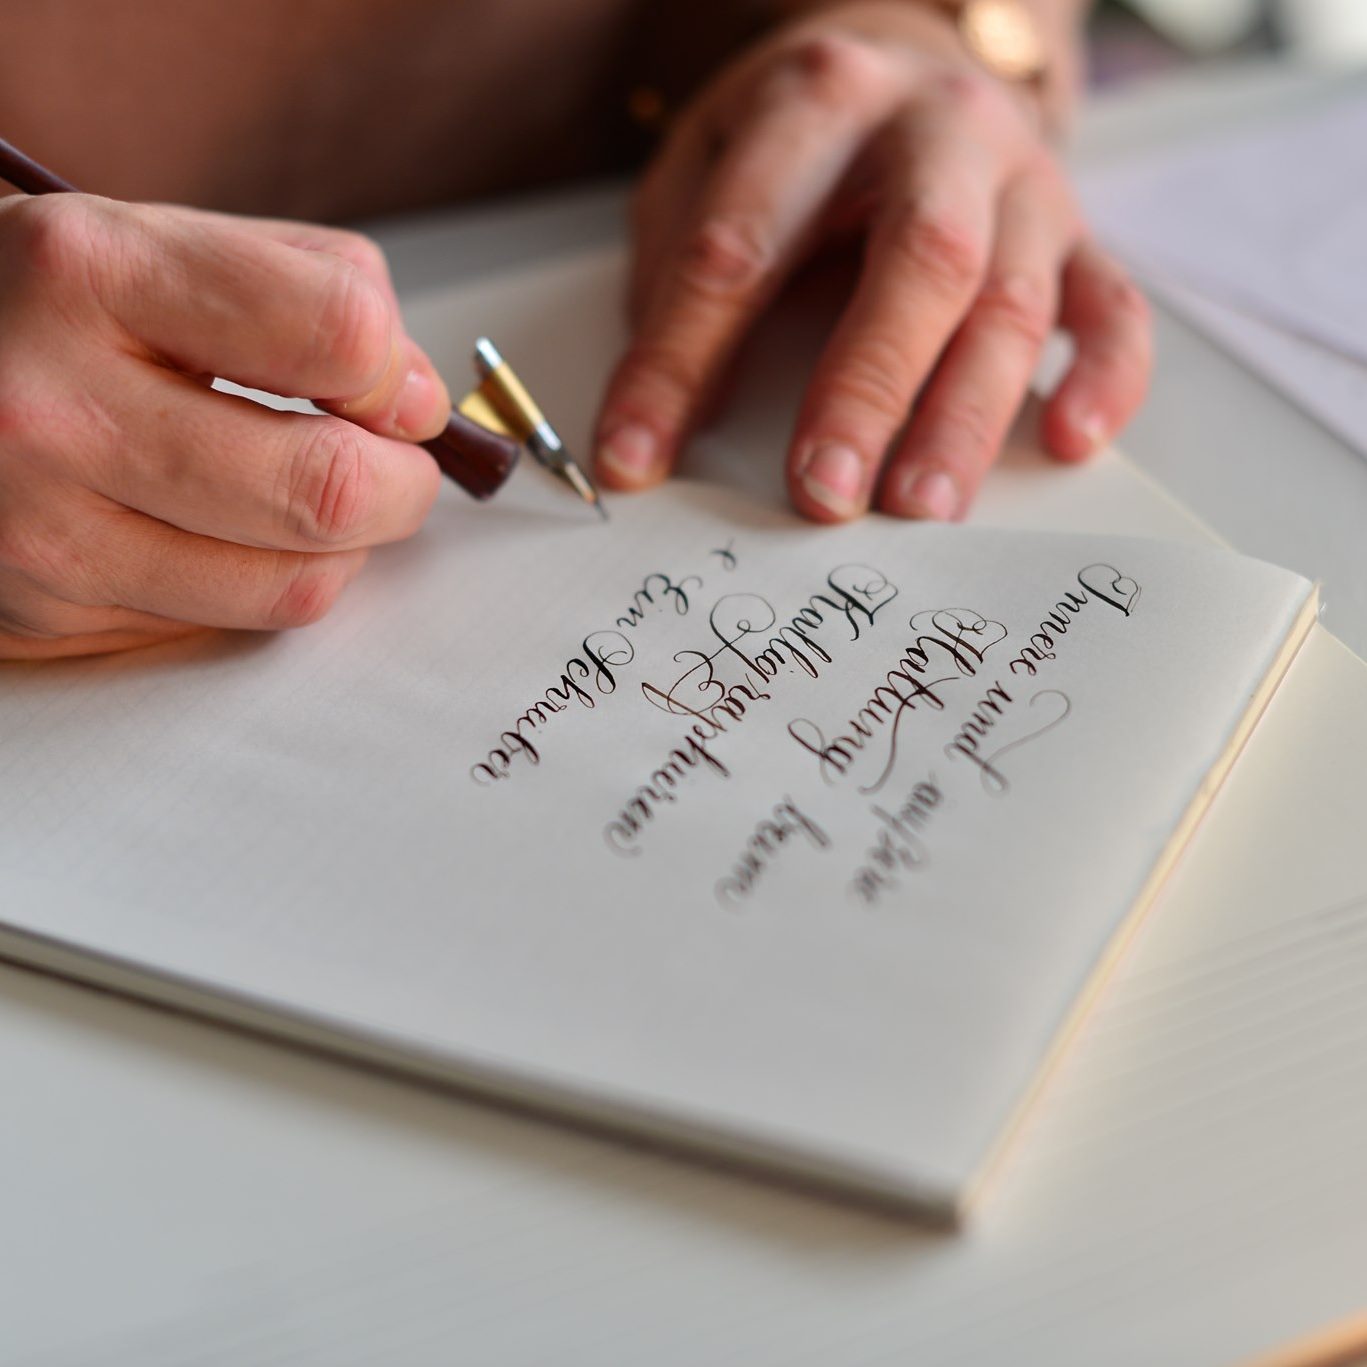 Innere und äußere
Haltung beim
Kalligraphieren
• Ein Schreiber